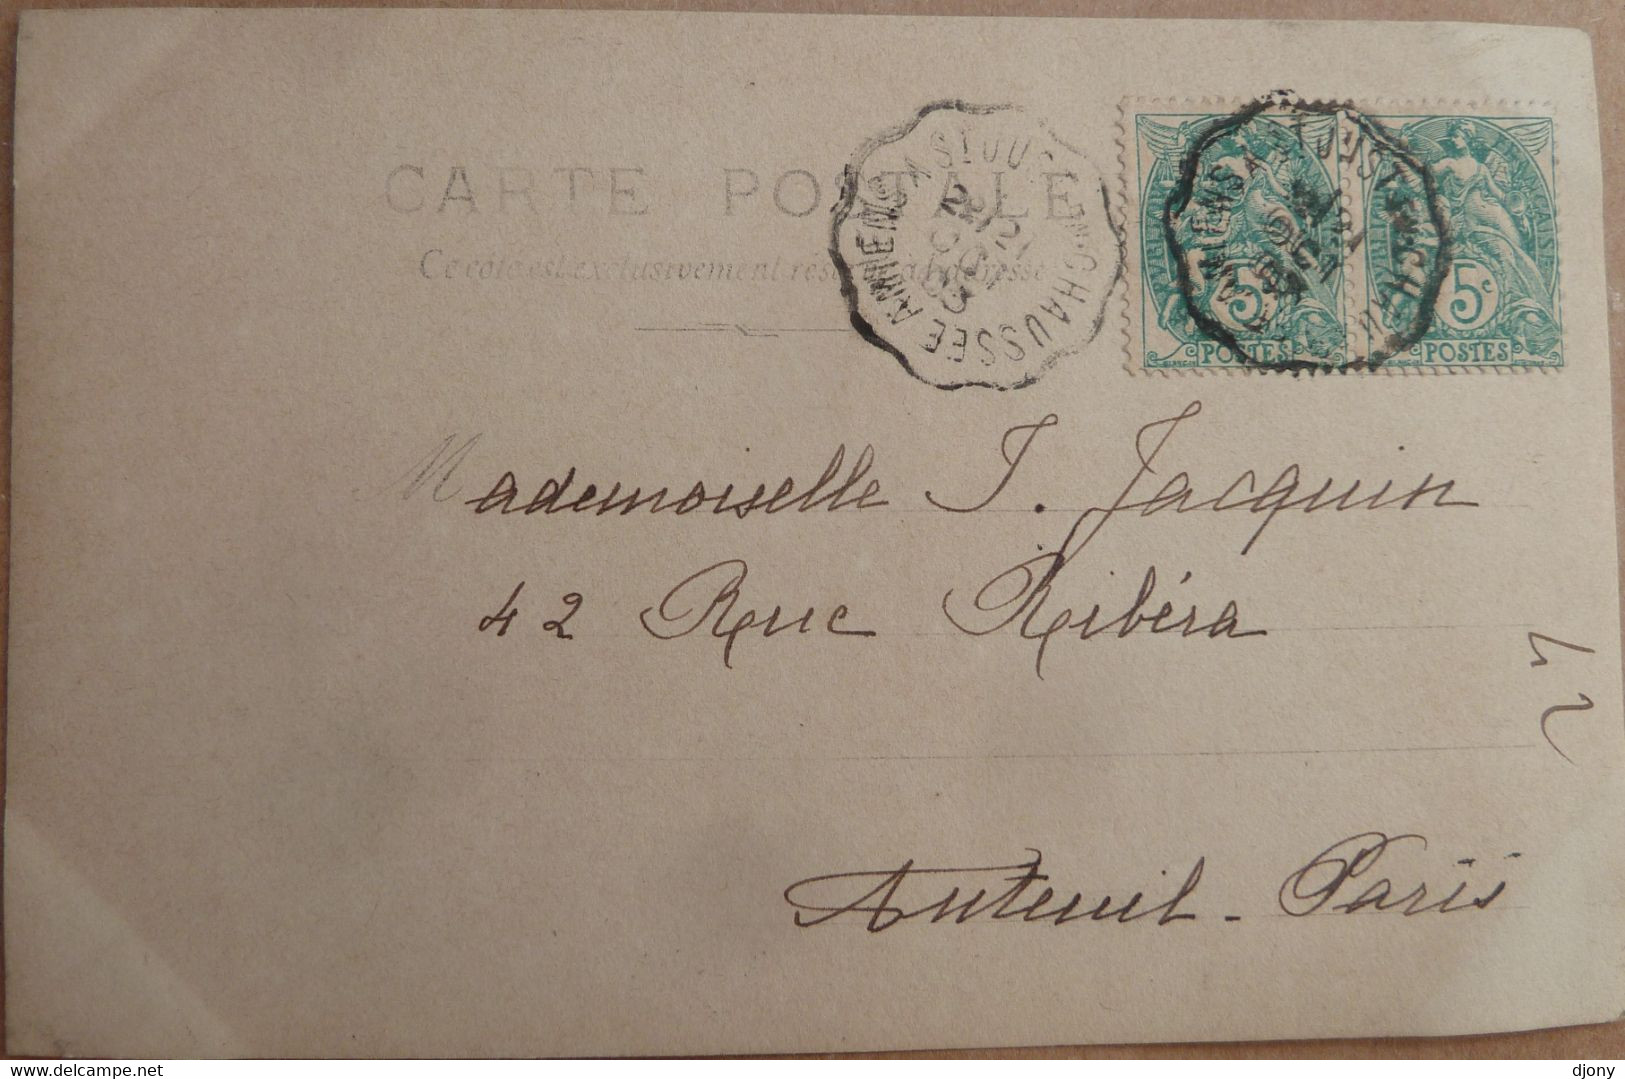 CARTE POSTALE
Ce côté est exclusivement réservé à l'adresse
AMIENS A ST JUST-EN-CHAUSSÉE
21
OCT
03
5c
POSTES
5c
POSTES
Mademoiselle J. Jacquin
42 Rue Ribéra
42
Auteuil - Paris
delcampe.net
djony